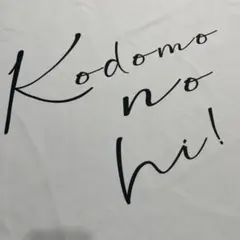 Kodomo
no
hi!